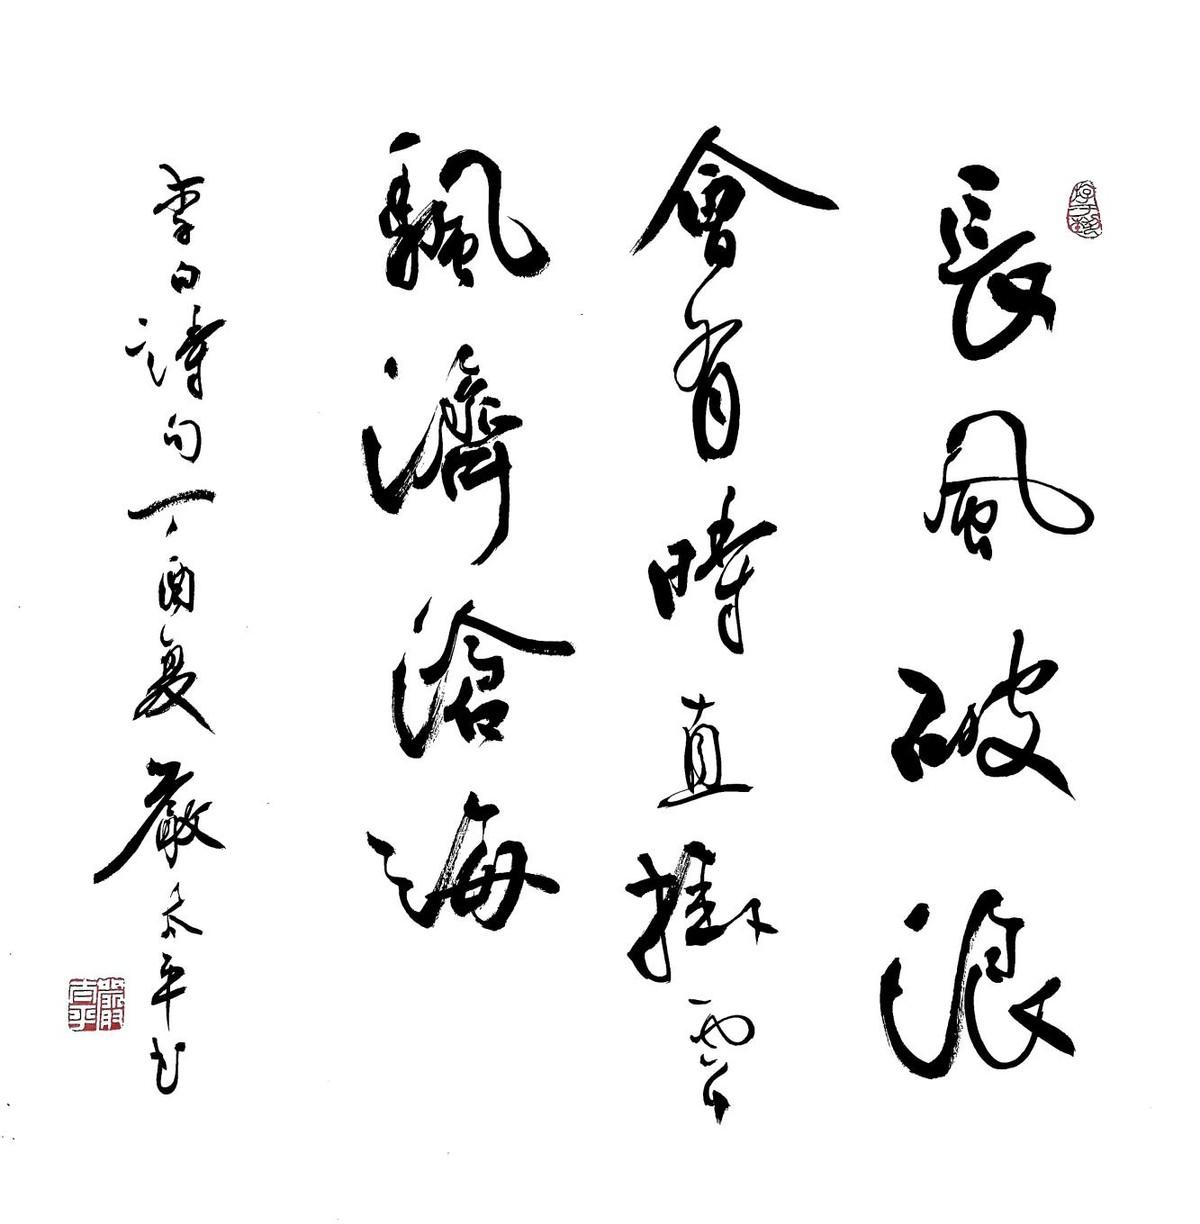 長風破浪
會有時直掛雲
颿濟滄海
李白詩句丁酉夏嚴太平书